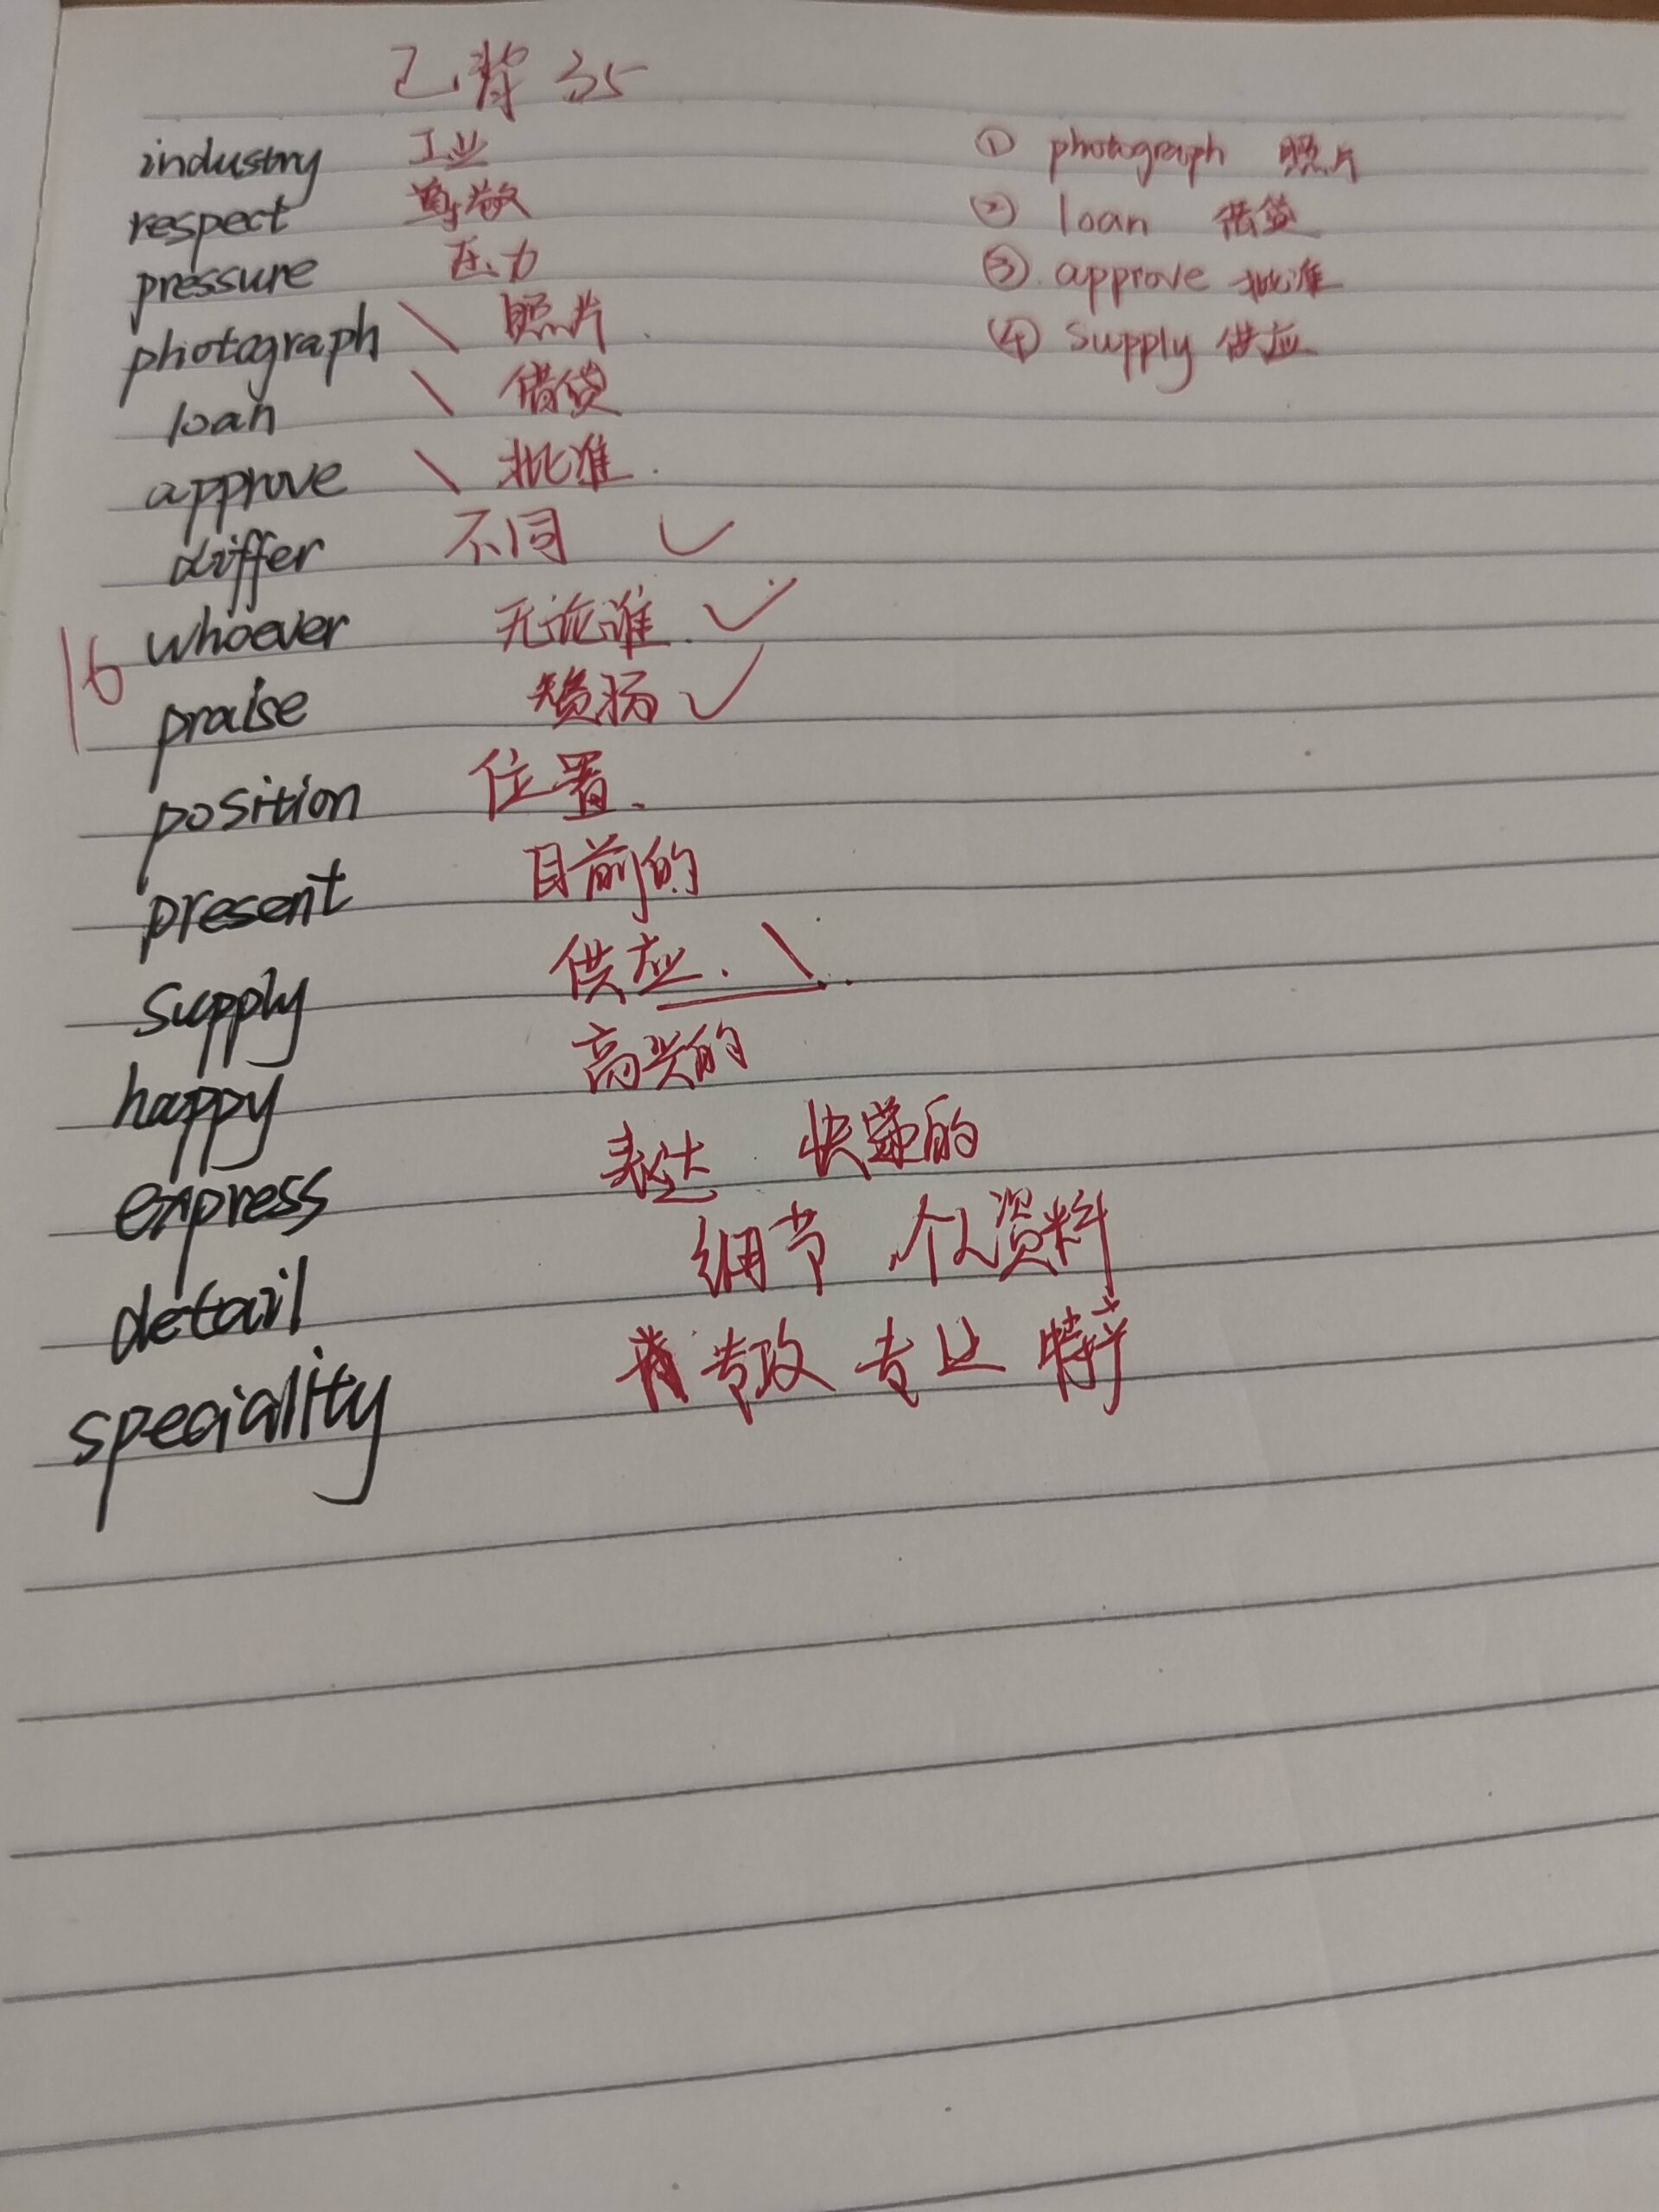 已背 35
industry 工业
respect 尊敬
pressure 压力
photograph \ 照片.
loan \ 借贷
approve \ 批准.
differ 不同 ✓
whoever 无论谁. ✓
praise 赞扬 ✓
position 位置.
present 目前的
supply 供应. \
happy 高兴的
express 表达 快递的
detail 细节 个人资料
speciality 专攻 专业 特产
16
① photograph 照片
② loan 借贷
③. approve 批准
④ supply 供应